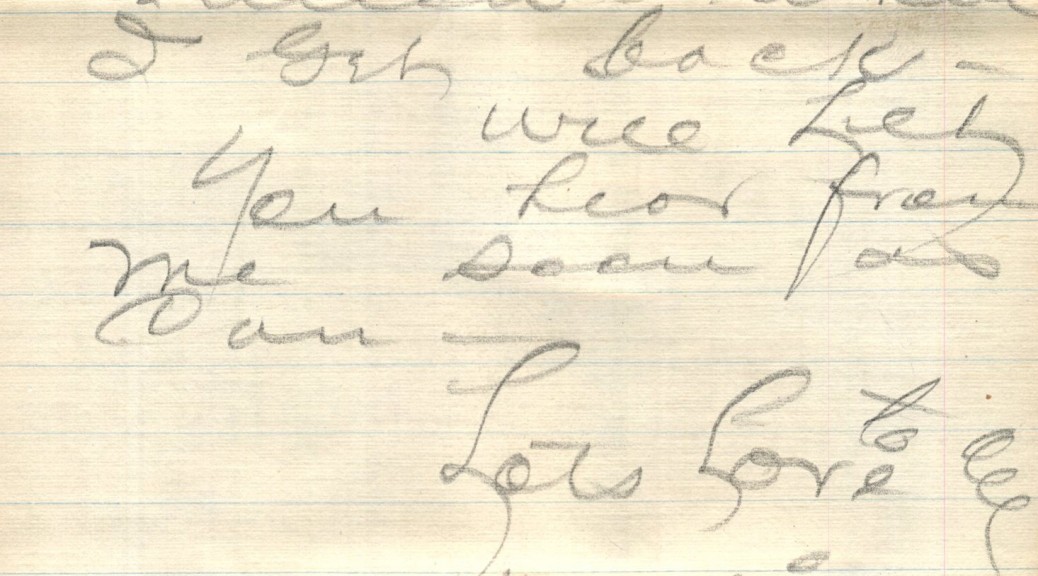 I get back -
will let
you hear from
me soon as
Can -
Lots Love to